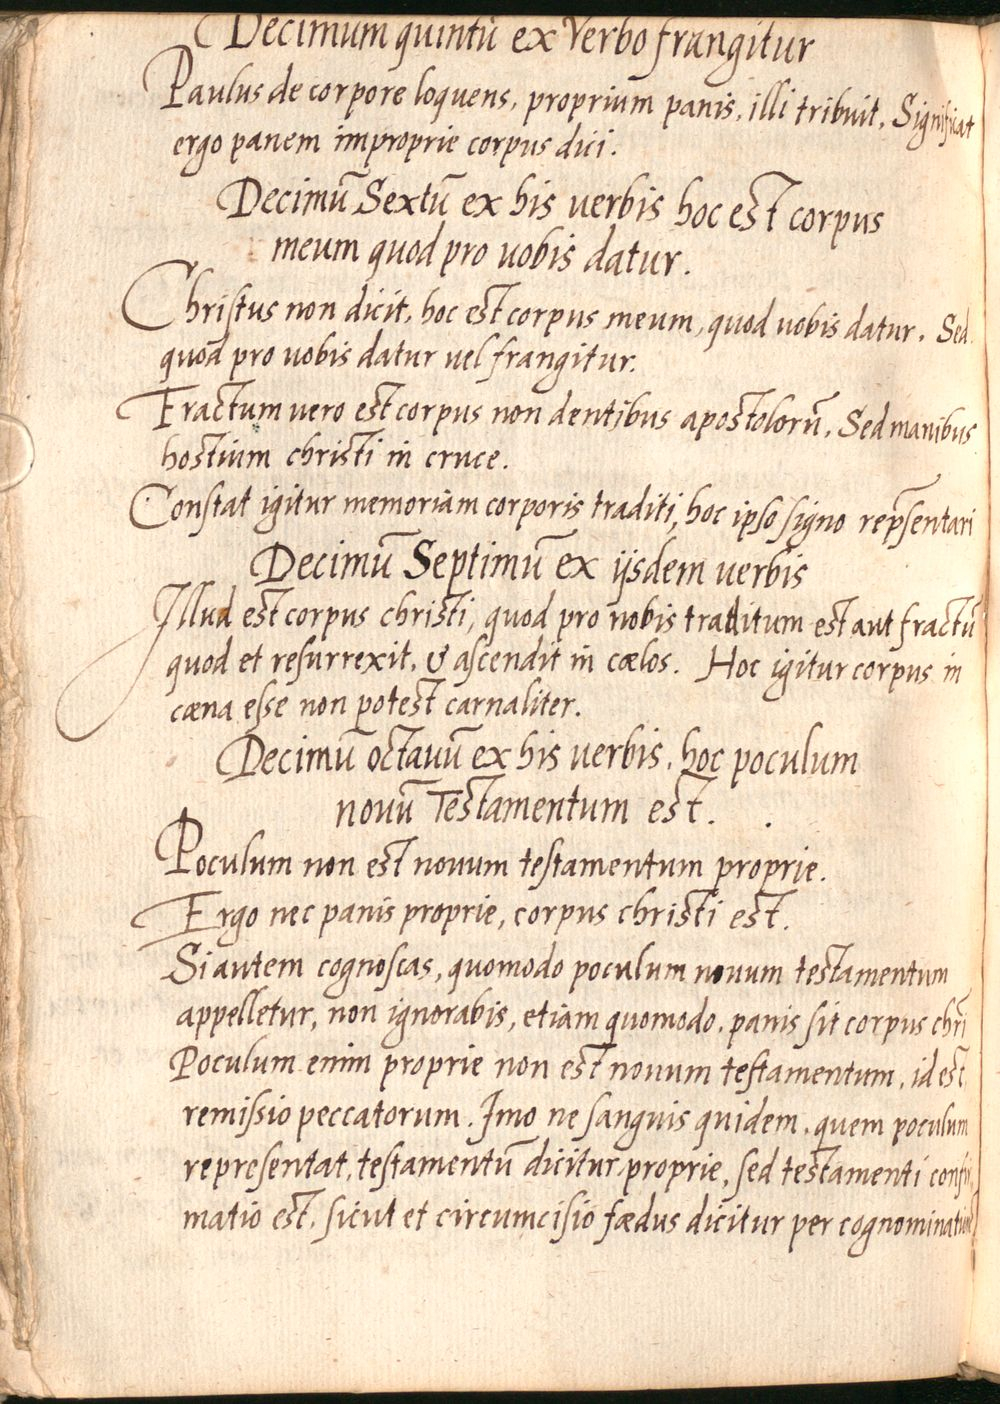 Decimum quintū ex Verbo frangitur
Paulus de corpore loquens, proprium panis, illi tribuit. Significat
ergo panem improprie corpus dici.
Decimū Sextū ex his uerbis hoc est corpus
meum quod pro uobis datur.
Christus non dicit, hoc est corpus meum, quod uobis datur. Sed
quod pro uobis datur uel frangitur.
Fractum vero est corpus non dentibus apostolorū. Sed manibus
hostium christi in cruce.
Constat igitur memoriam corporis traditi, hoc ipso signo repr̄sentari
Decimū Septimū ex ijsdem uerbis
Illud est corpus christi, quod pro nobis traditum est aut fractū
quod et resurrexit, & ascendit in cœlos. Hoc igitur corpus in
cæna esse non potest carnaliter.
Decimū octauū ex his uerbis, hoc poculum
nouū Testamentum est.
Poculum non est nouum testamentum proprie.
Ergo nec panis proprie, corpus christi est.
Si autem cognoscas, quomodo poculum nouum testamentum
appelletur, non ignorabis, etiam quomodo, panis sit corpus chrī
Poculum enim proprie non est nouum testamentum, id est
remissio peccatorum. Imo ne sanguis quidem, quem poculum
representat, testamentū dicitur proprie, sed testamenti confir
matio est, sicut et circumcisio fædus dicitur per